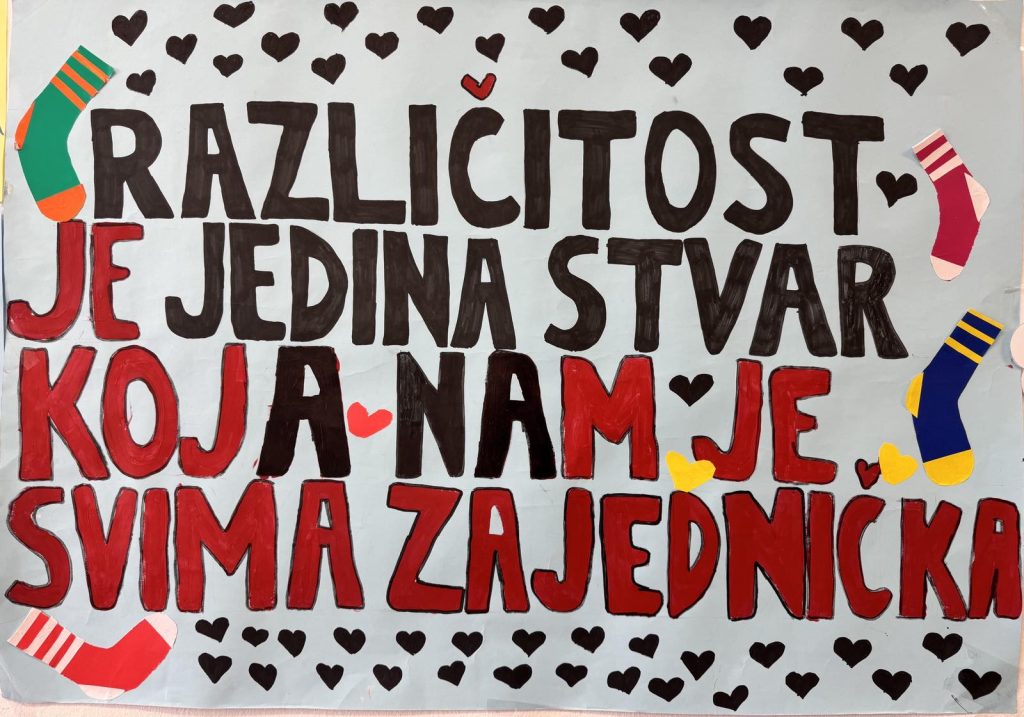 RAZLIČITOST
JE JEDINA STVAR
KOJA NAM JE
SVIMA ZAJEDNIČKA